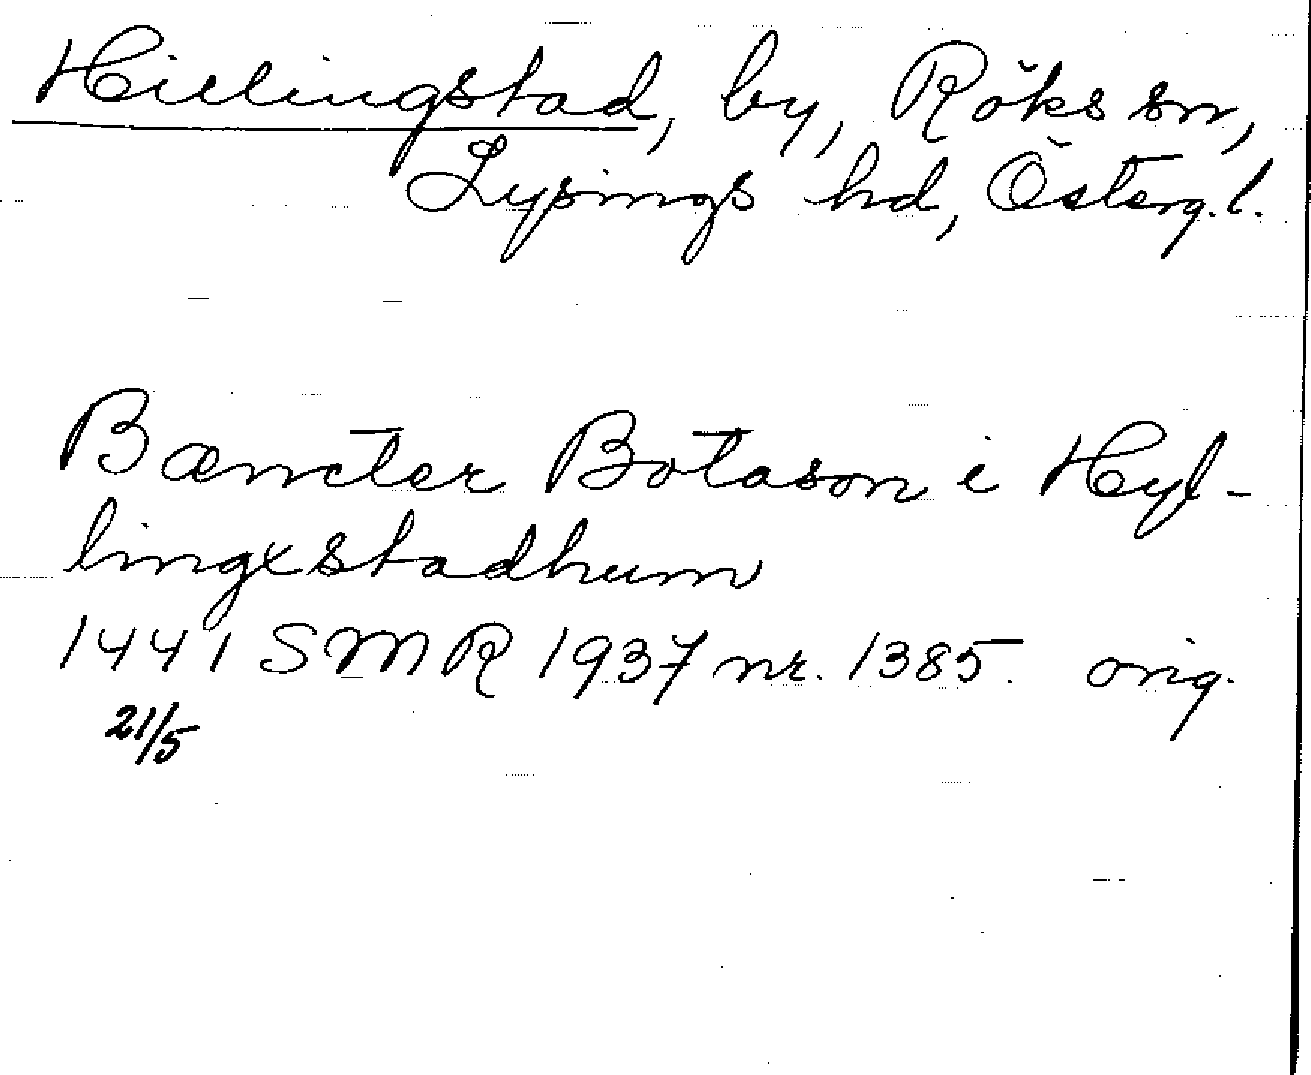 Hillingstad, by, Röks sn,
Lysings hd, Österg.l.
Bæncter Botason i Hyl-
lingxstadhum
1441 SMR 1937 nr. 1385. orig.
21/5